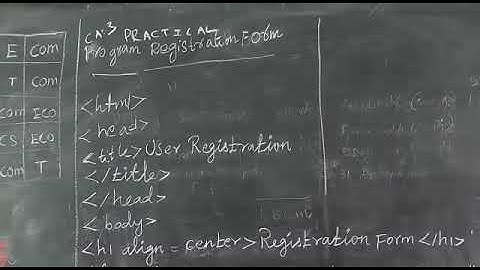 CA.3 PRACTICAL
Program Registration Form
E Com
T Com
Com ECO
CS ECO
Com T
<html>
<head>
<title>User Registration
</title>
</head>
<body>
<h1 align = center>Registration Form </h1>